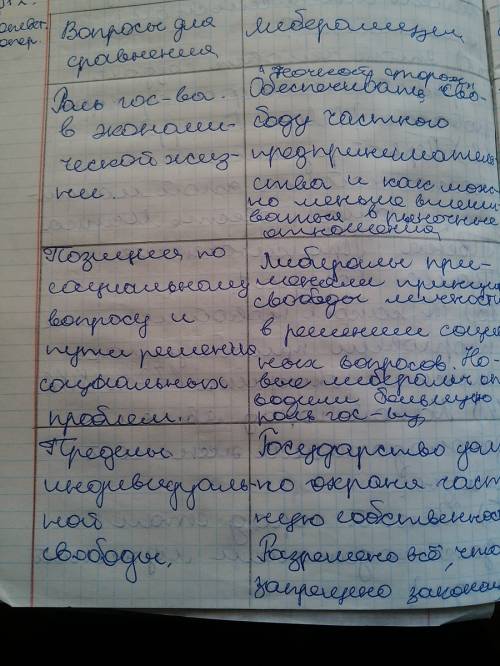 Вопросы для
сравнения
либерализм
Роль гос-ва
в экономи-
ческой жиз-
ни
"Ночной сторож"
Обеспечивать сво-
боду частного
предприниматель
ства и как можн
но меньше вмеши
ваться в рыночные
отношения
Позиция по
социальному
вопросу и
пути решения
социальных
проблем.
Либералы при-
принцип
свободы личност
в решении соци
ных вопросов. Но-
вые либералы от
водили большую
роль гос-ву
Пределы
индивидуаль-
ной
свободы,
Государство дол
но охраня част
ную собственнос
Разрешено всё, что
запрещено законом